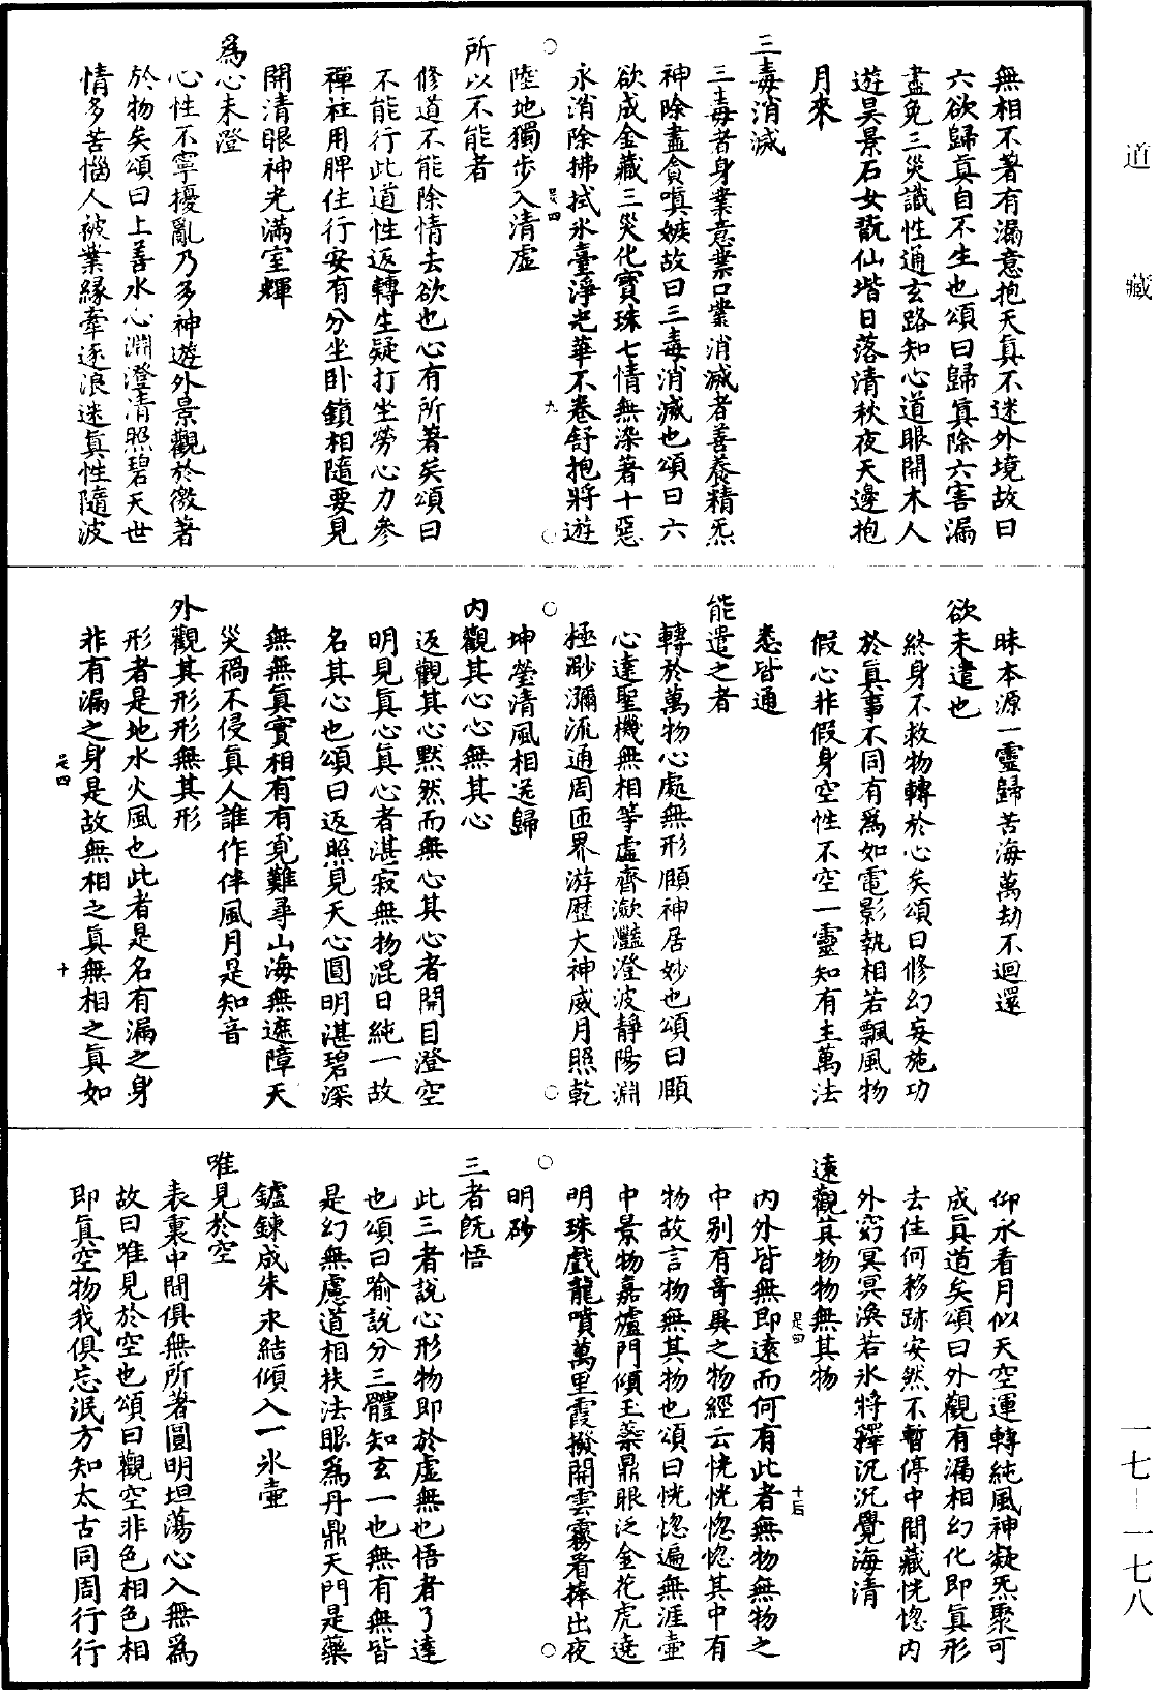 道藏
無相不著有漏意抱天真不迷外境故曰
六欲歸真自不生也頌曰歸真除六害漏
盡免三災識性通玄路知心道眼開木人
遊昊景石女翫仙堦日落清秋夜天邊抱
月來
三毒消滅
三毒者身業意業口業消滅者善養精炁
神除盡貪嗔嫉故曰三毒消滅也頌曰六
欲成金藏三災化寶珠七情無染著十惡
永消除拂拭氷臺淨光華不卷舒抱將遊
是四 九
陸地獨步入清虛
所以不能者
修道不能除情去欲也心有所著矣頌曰
不能行此道性返轉生疑打坐勞心力參
禪社用脾住行安有分坐卧鎖相隨要見
開清眼神光滿室輝
爲心未澄
心性不寧擾亂乃多神遊外景觀於微著
於物矣頌曰上善水心淵澄清照碧天世
情多苦惱人被業緣牽逐浪迷真性隨波
昧本源一靈歸苦海萬劫不迴還
欲未遣也
終身不救物轉於心矣頌曰修幻妄施功
於真事不同有爲如電影執相若飄風物
假心非假身空性不空一靈知有主萬法
悉皆通
能遣之者
轉於萬物心處無形頤神居妙也頌曰頤
心達聖機無相等虛齊瀲灩澄波靜陽淵
極渺瀰流通周匝界游歷大神威月照乾
坤瑩清風相送歸
內觀其心心無其心
返觀其心默然而無心其心者開目澄空
明見真心真心者湛寂無物混日純一故
名其心也頌曰返照見天心圓明湛碧深
無無真實相有有覓難尋山海無遮障天
災禍不侵真人誰作伴風月是知音
外觀其形形無其形
形者是地水火風也此者是名有漏之身
非有漏之身是故無相之真無相之真如
是四 十
仰水看月似天空運轉純風神凝炁聚可
成真道矣頌曰外觀有漏相幻化即真形
去住何移跡安然不暫停中間藏恍惚內
外窈冥冥渙若氷將釋沉沉覺海清
遠觀其物物無其物
內外皆無即遠而何有此者無物無物之
是四 十後
中別有奇異之物經云恍恍惚惚其中有
物故言物無其物也頌曰恍惚遍無涯壷
中景物嘉爐門傾玉蘂鼎眼泛金花虎遶
明珠戲龍噴萬里霞撥開雲霧看捧出夜
明砂
三者旣悟
此三者說心形物即於虛無也悟者了達
也頌曰喻說分三體知玄一也無有無皆
是幻無慮道相扶法眼爲丹鼎天門是藥
鑪鍊成朱汞結傾入一氷壷
唯見於空
表裏中間俱無所著圓明坦蕩心入無爲
故曰唯見於空也頌曰觀空非色相色相
即真空物我俱忘泯方知太古同周行行
一七—一七八